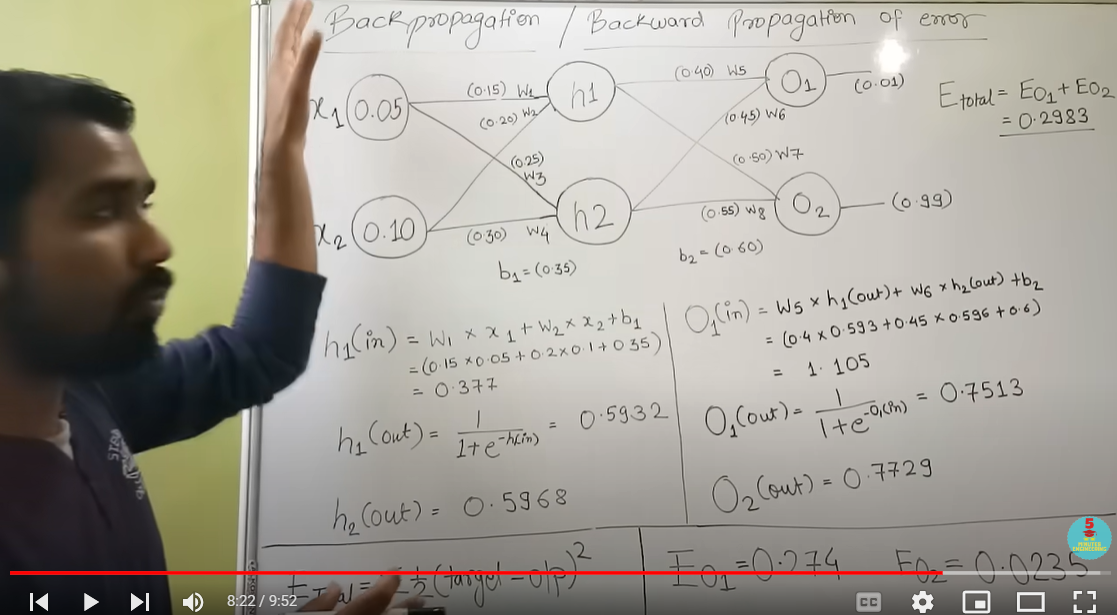 Backpropagation / Backward Propagation of error
x1 0.05
x2 0.10
(0.15) W1
(0.20) W2
(0.25) W3
(0.30) W4
h1
h2
b1 = (0.35)
(0.40) W5
(0.45) W6
(0.50) W7
(0.55) W8
b2 = (0.60)
O1
(0.01)
O2
(0.99)
Etotal = EO1 + EO2
= 0.2983
h1(in) = W1 × x1 + W2 × x2 + b1
= (0.15 × 0.05 + 0.2 × 0.1 + 0.35)
= 0.377
h1(out) = 1 / 1+e^-h1(in) = 0.5932
h2(out) = 0.5968
O1(in) = W5 × h1(out) + W6 × h2(out) + b2
= (0.4 × 0.593 + 0.45 × 0.596 + 0.6)
= 1.105
O1(out) = 1 / 1+e^-O1(in) = 0.7513
O2(out) = 0.7729
½ (target - o/p)²
EO1 = 0.274
EO2 = 0.0235
5
MINUTES
ENGINEERING
8:22 / 9:52
CC